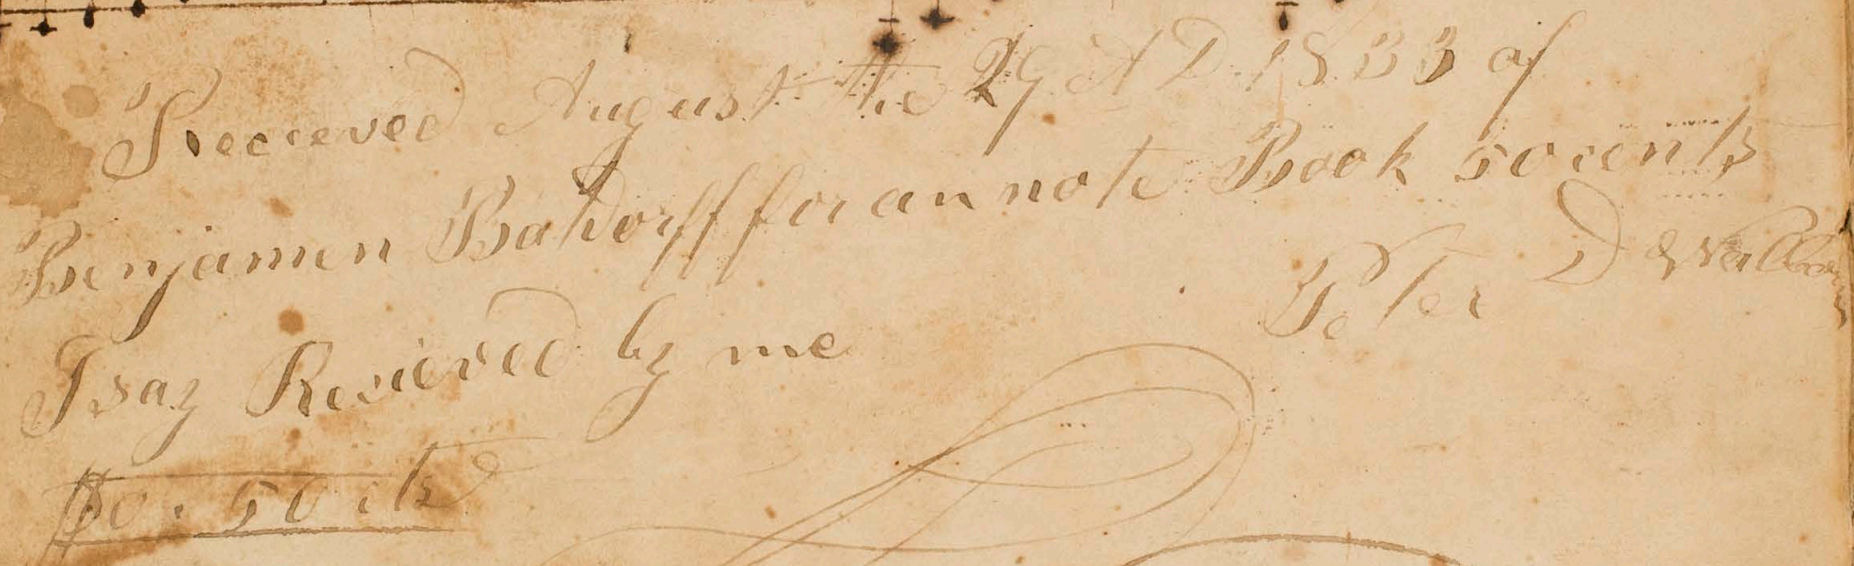 Recieved August the 29 A D 1833 of
Benjamen Batdorff for an note Book 50 cents
I say Recieved by me Peter D
$0. 50 cts